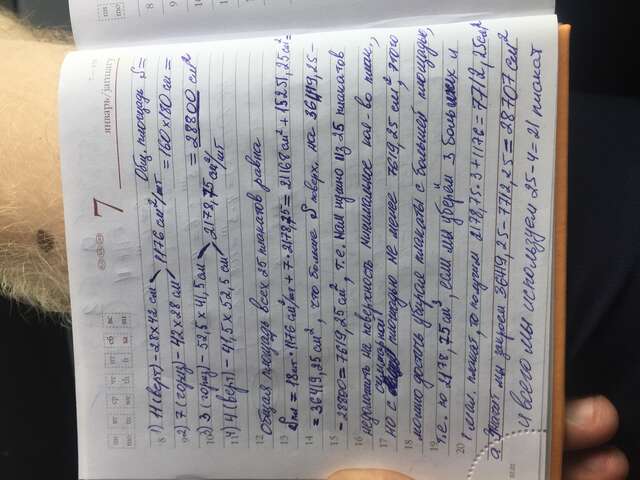 7
январь/january
пн вт ср чт пт сб вс
mo tu we th fr sa su
Общ. площадь S=
= 160 × 180 см =
= 28800 см²
8 1) 11 (верт) – 28 × 42 см
1176 см²/шт
9 2) 7 (гориз) – 42 × 28 см
10 3) 3 (гориз) – 52,5 × 41,5 см
2178,75 см²/шт
11 4) 4 (верт) – 41,5 × 52,5 см
12 Общая площадь всех 25 плакатов равна
13 Sпл = 18шт · 1176 см²/шт + 7 · 2178,75 = 21168 см² + 15251,25 см² =
14 = 36419,25 см², что больше S поверх. на 36419,25 –
15 – 28800 = 7619,25 см², т.е. нам нужно из 25 плакатов
16 недоложить на поверхность минимальное кол-во плак.,
17 но с суммарной площадью не менее 7619,25 см², этого
18 можно достичь убирая плакаты с большей площадью,
19 т.е. по 2178,75 см³, если мы уберём 3 больших и
20 1 мал. плакат, то получим 2178,75 · 3 + 1176 = 7712,25 см²
Значит мы закроем 36419,25 – 7712,25 = 28707 см²
и всего мы используем 25 – 4 = 21 плакат